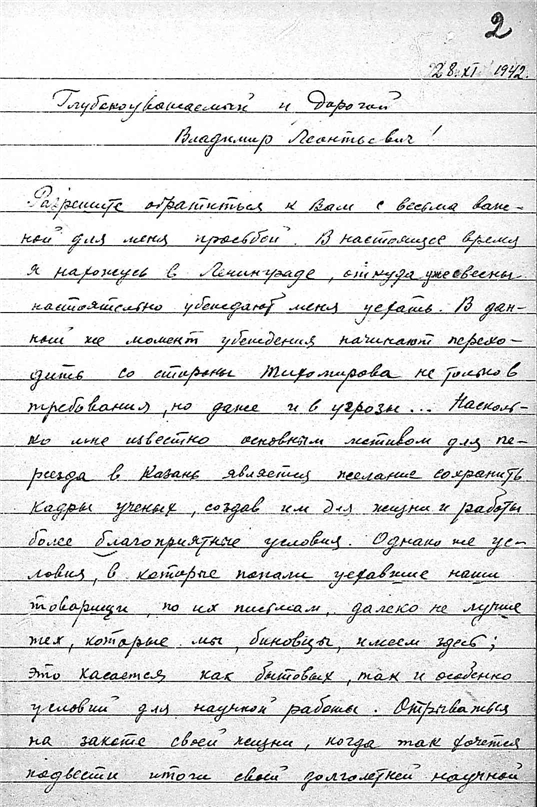 2
28.XI 1942.
Глубокоуважаемый и Дорогой
Владимир Леонтьевич!
Разрешите обратиться к Вам с весьма важ-
ной для меня просьбой. В настоящее время
я нахожусь в Ленинграде, откуда уже с весны
настоятельно убеждают меня уехать. В дан-
ный же момент убеждения начинают перехо-
дить со стороны Тихомирова не только в
требования, но даже и в угрозы... Насколь-
ко мне известно основным мотивом для пе-
реезда в Казань является желание сохранить
кадры ученых, создав им для жизни и работы
более благоприятные условия. Однако же ус-
ловия, в которые попали уехавшие наши
товарищи, по их письмам, далеко не лучше
тех, которые мы, биновцы, имеем здесь;
это касается как бытовых, так и особенно
условий для научной работы. Отрываться
на закате своей жизни, когда так хочется
подвести итоги своей долголетней научной